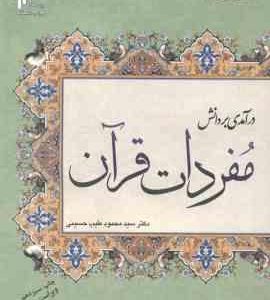 درآمدی بر دانش
مفردات قرآن
دکتر سید محمود طیب حسینی